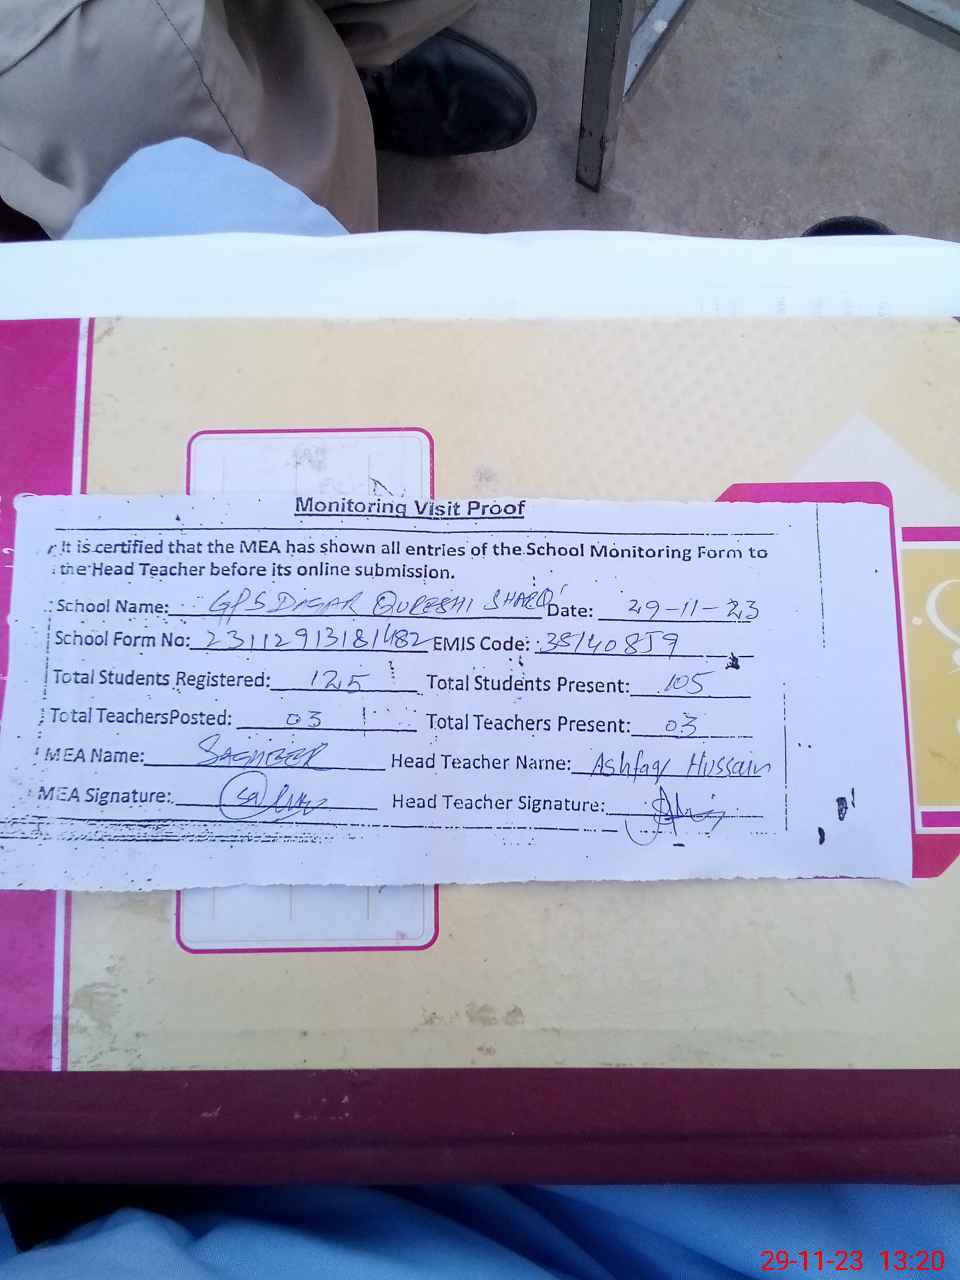 Monitoring Visit Proof
It is certified that the MEA has shown all entries of the School Monitoring Form to
the Head Teacher before its online submission.
School Name: GPS DAGAR QURESHI SHARQI Date: 29-11-23
School Form No: 23112913181482 EMIS Code: 38140859
Total Students Registered: 125 Total Students Present: 105
Total TeachersPosted: 03 Total Teachers Present: 03
MEA Name: SAGHEER Head Teacher Name: Ashfaq Hussain
MEA Signature: Head Teacher Signature:
29-11-23 13:20